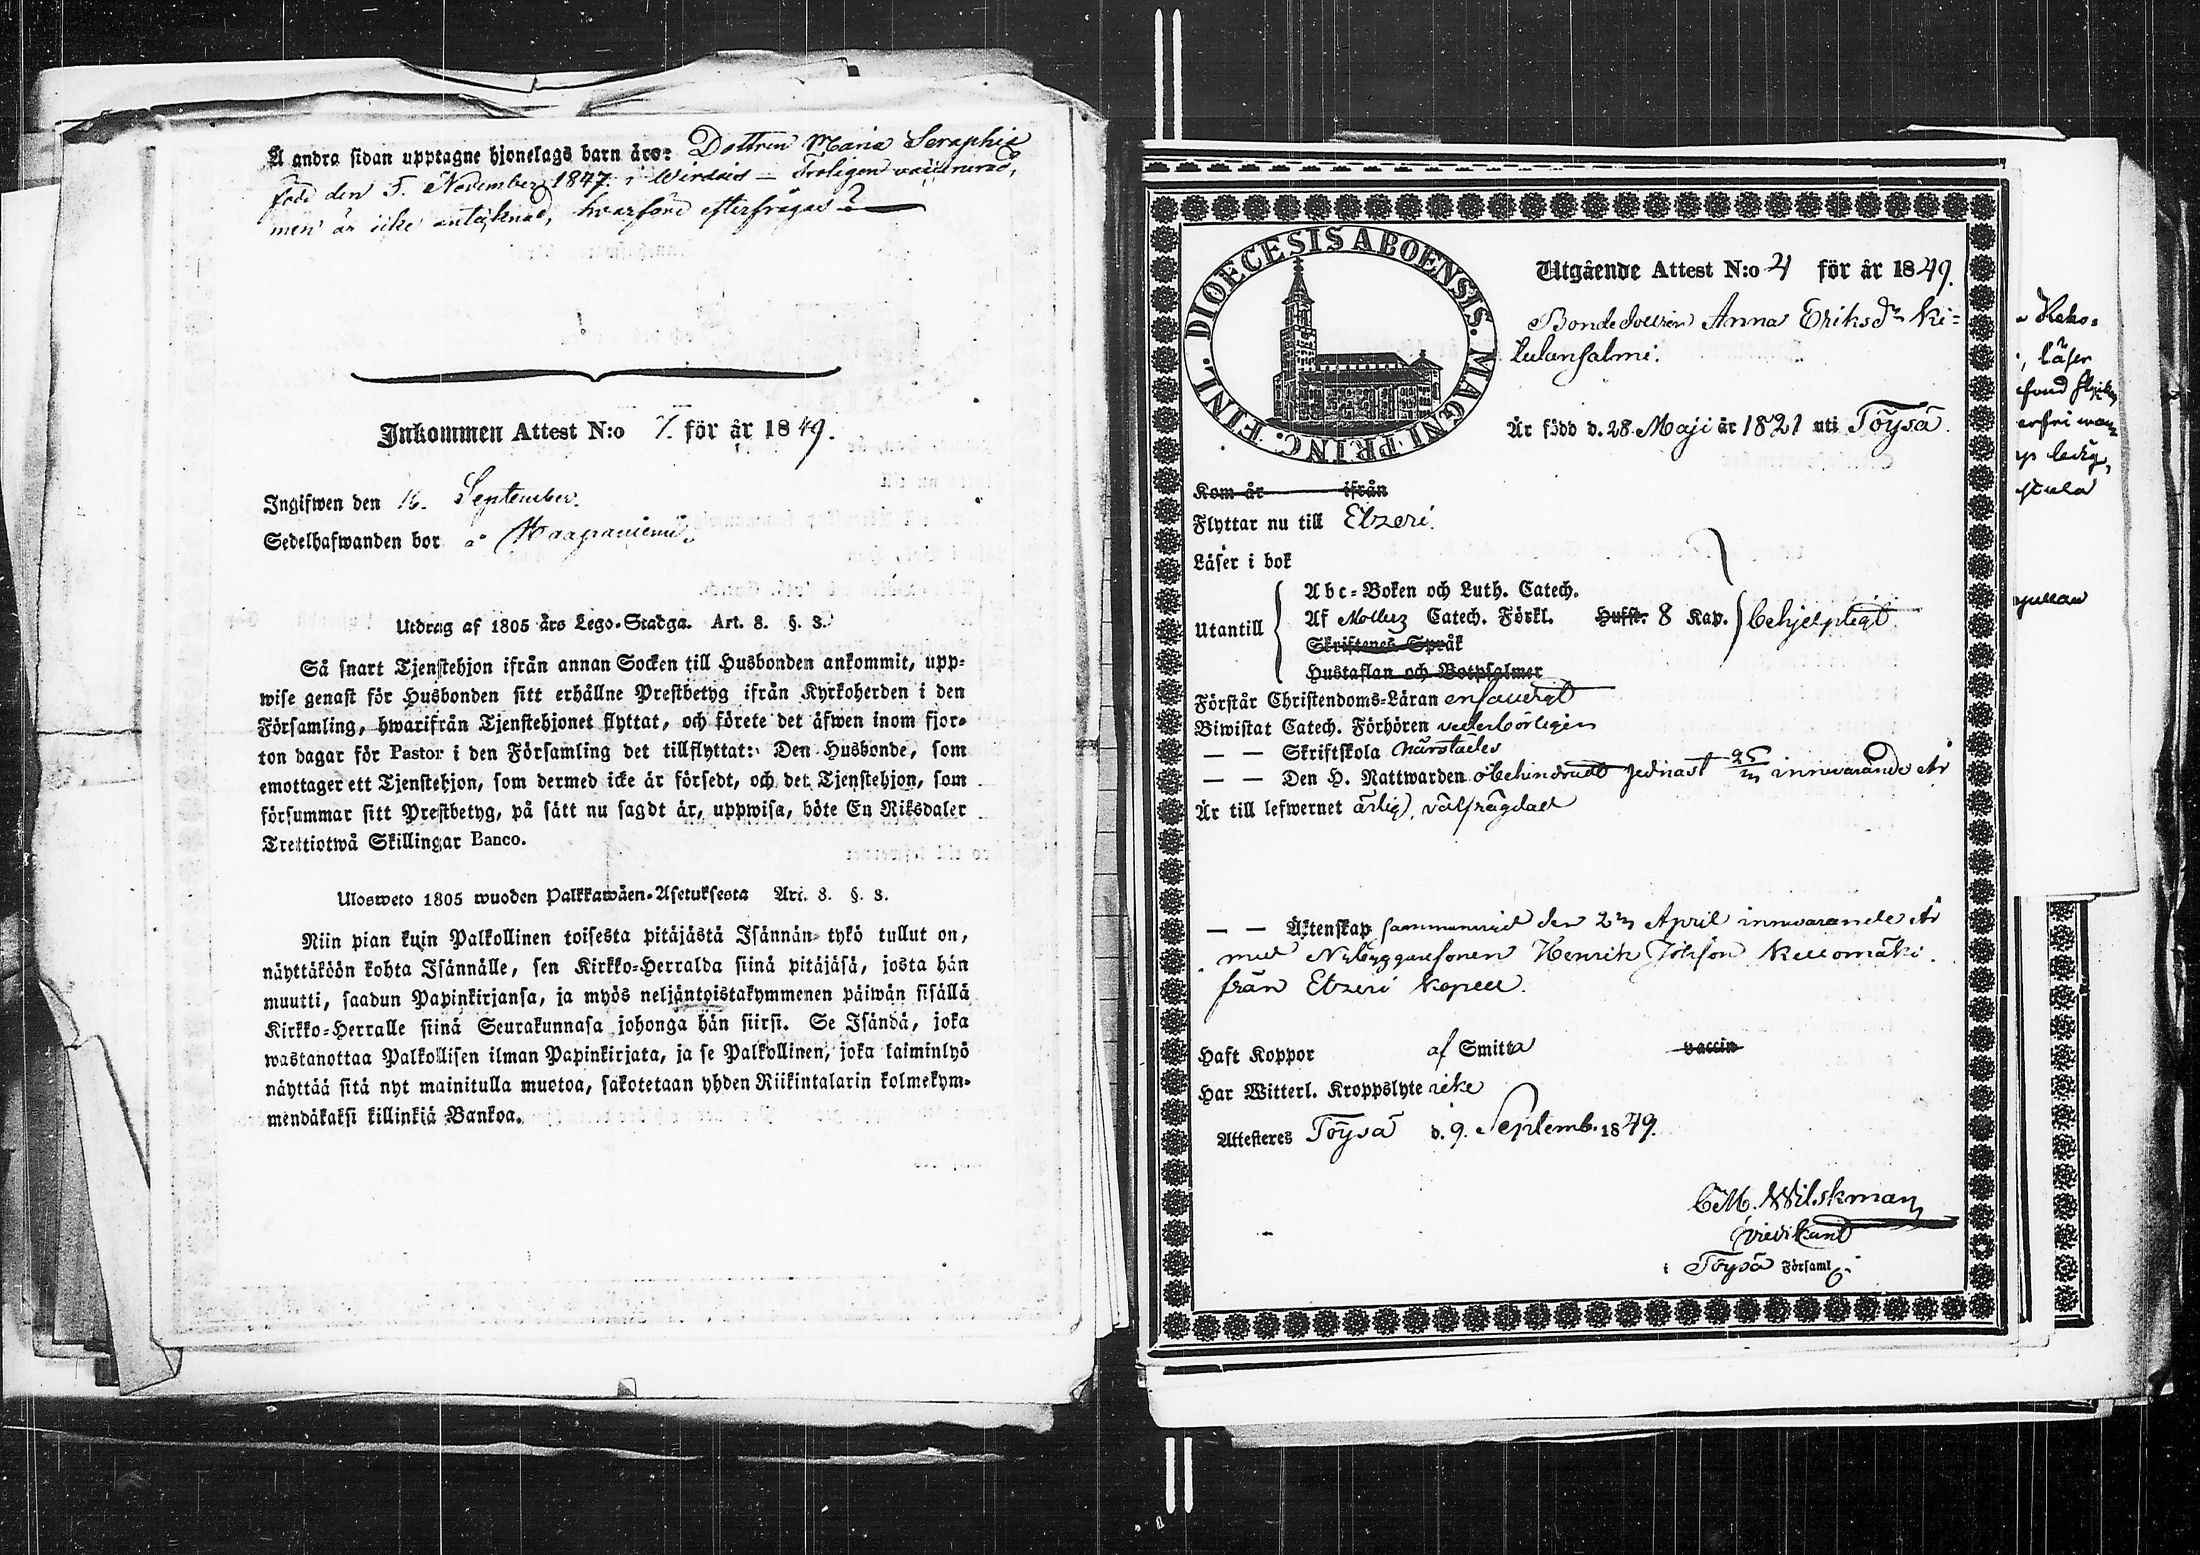 Å andra sidan upptagne hjonelags barn äro: Dottren Maria Seraphia
född den 5. November 1847. i Wirdois — Troligen vaccinerad,
men är icke antecknad, hvarföre efterfrågas?
Inkommen Attest N:o 7. för år 1849.
Ingifwen den 16. September.
Sedelhafwanden bor å Haapaniemi.
Utdrag af 1805 års Lego-Stadga. Art. 8. §. 3.
Så snart Tjenstehjon ifrån annan Socken till Husbonden ankommit, upp-
wise genast för Husbonden sitt erhållne Prestbetyg ifrån Kyrkoherden i den
Församling, hwarifrån Tjenstehjonet flyttat, och förete det äfwen inom fjor-
ton dagar för Pastor i den Församling det tillflyttat: Den Husbonde, som
emottager ett Tjenstehjon, som dermed icke är försedt, och det Tjenstehjon, som
försummar sitt Prestbetyg, på sätt nu sagdt är, uppwisa, böte En Riksdaler
Trettiotwå Skillingar Banco.
Ulosweto 1805 wuoden Palkkawäen-Asetuksesta Art. 8. §. 3.
Niin pian kuin Palkollinen toisesta pitäjästä Isännän tykö tullut on,
näyttäköön kohta Isännälle, sen Kirkko-Herralda siinä pitäjäsä, josta hän
muutti, saadun Papinkirjansa, ja myös neljäntoistakymmenen päiwän sisällä
Kirkko-Herralle siinä Seurakunnasa johonga hän siirsi. Se Isändä, joka
wastanottaa Palkollisen ilman Papinkirjata, ja se Palkollinen, joka laiminlyö
näyttää sitä nyt mainitulla muotoa, sakotetaan yhden Riikintalarin kolmekym-
mendäkaksi killinkiä Bankoa.
FINL. DIOECESIS ABOENSIS. MAGNI PRINC.
Utgående Attest N:o 4 för år 1849.
Bondedottren Anna Eriksdr Ki-
tulansalmi.
Är född d. 28 Maji år 1821 uti Töysä.
Kom år ifrån
Flyttar nu till Etzeri.
Läser i bok
Utantill
Abc-Boken och Luth. Catech.
Af Catech. Förkl. Hufst. 8 Kap. behjelpligt.
Skriftenes Språk
Hustaflan och Botpsalmer
Förstår Christendoms-Läran enfaldigt
Biwistat Catech. Förhören vederbörligen
— — Skriftskola närstädes
— — Den H. Nattwarden obehindradt sednast innevarande År
Är till lefwernet ärlig, välfrägdad
— — Äktenskap sammanvigd den April innevarande År
med Nybyggaresonen Henrik Kellomäki
från Etzeri Kapell.
Haft Koppor af Smitta vaccin
Har Witterl. Kroppslyte icke
Attesteres Töysä d. 9. Septemb. 1849.
C.M. Wilskman
Predikant
i Töysä Församl.
läser
ledig,